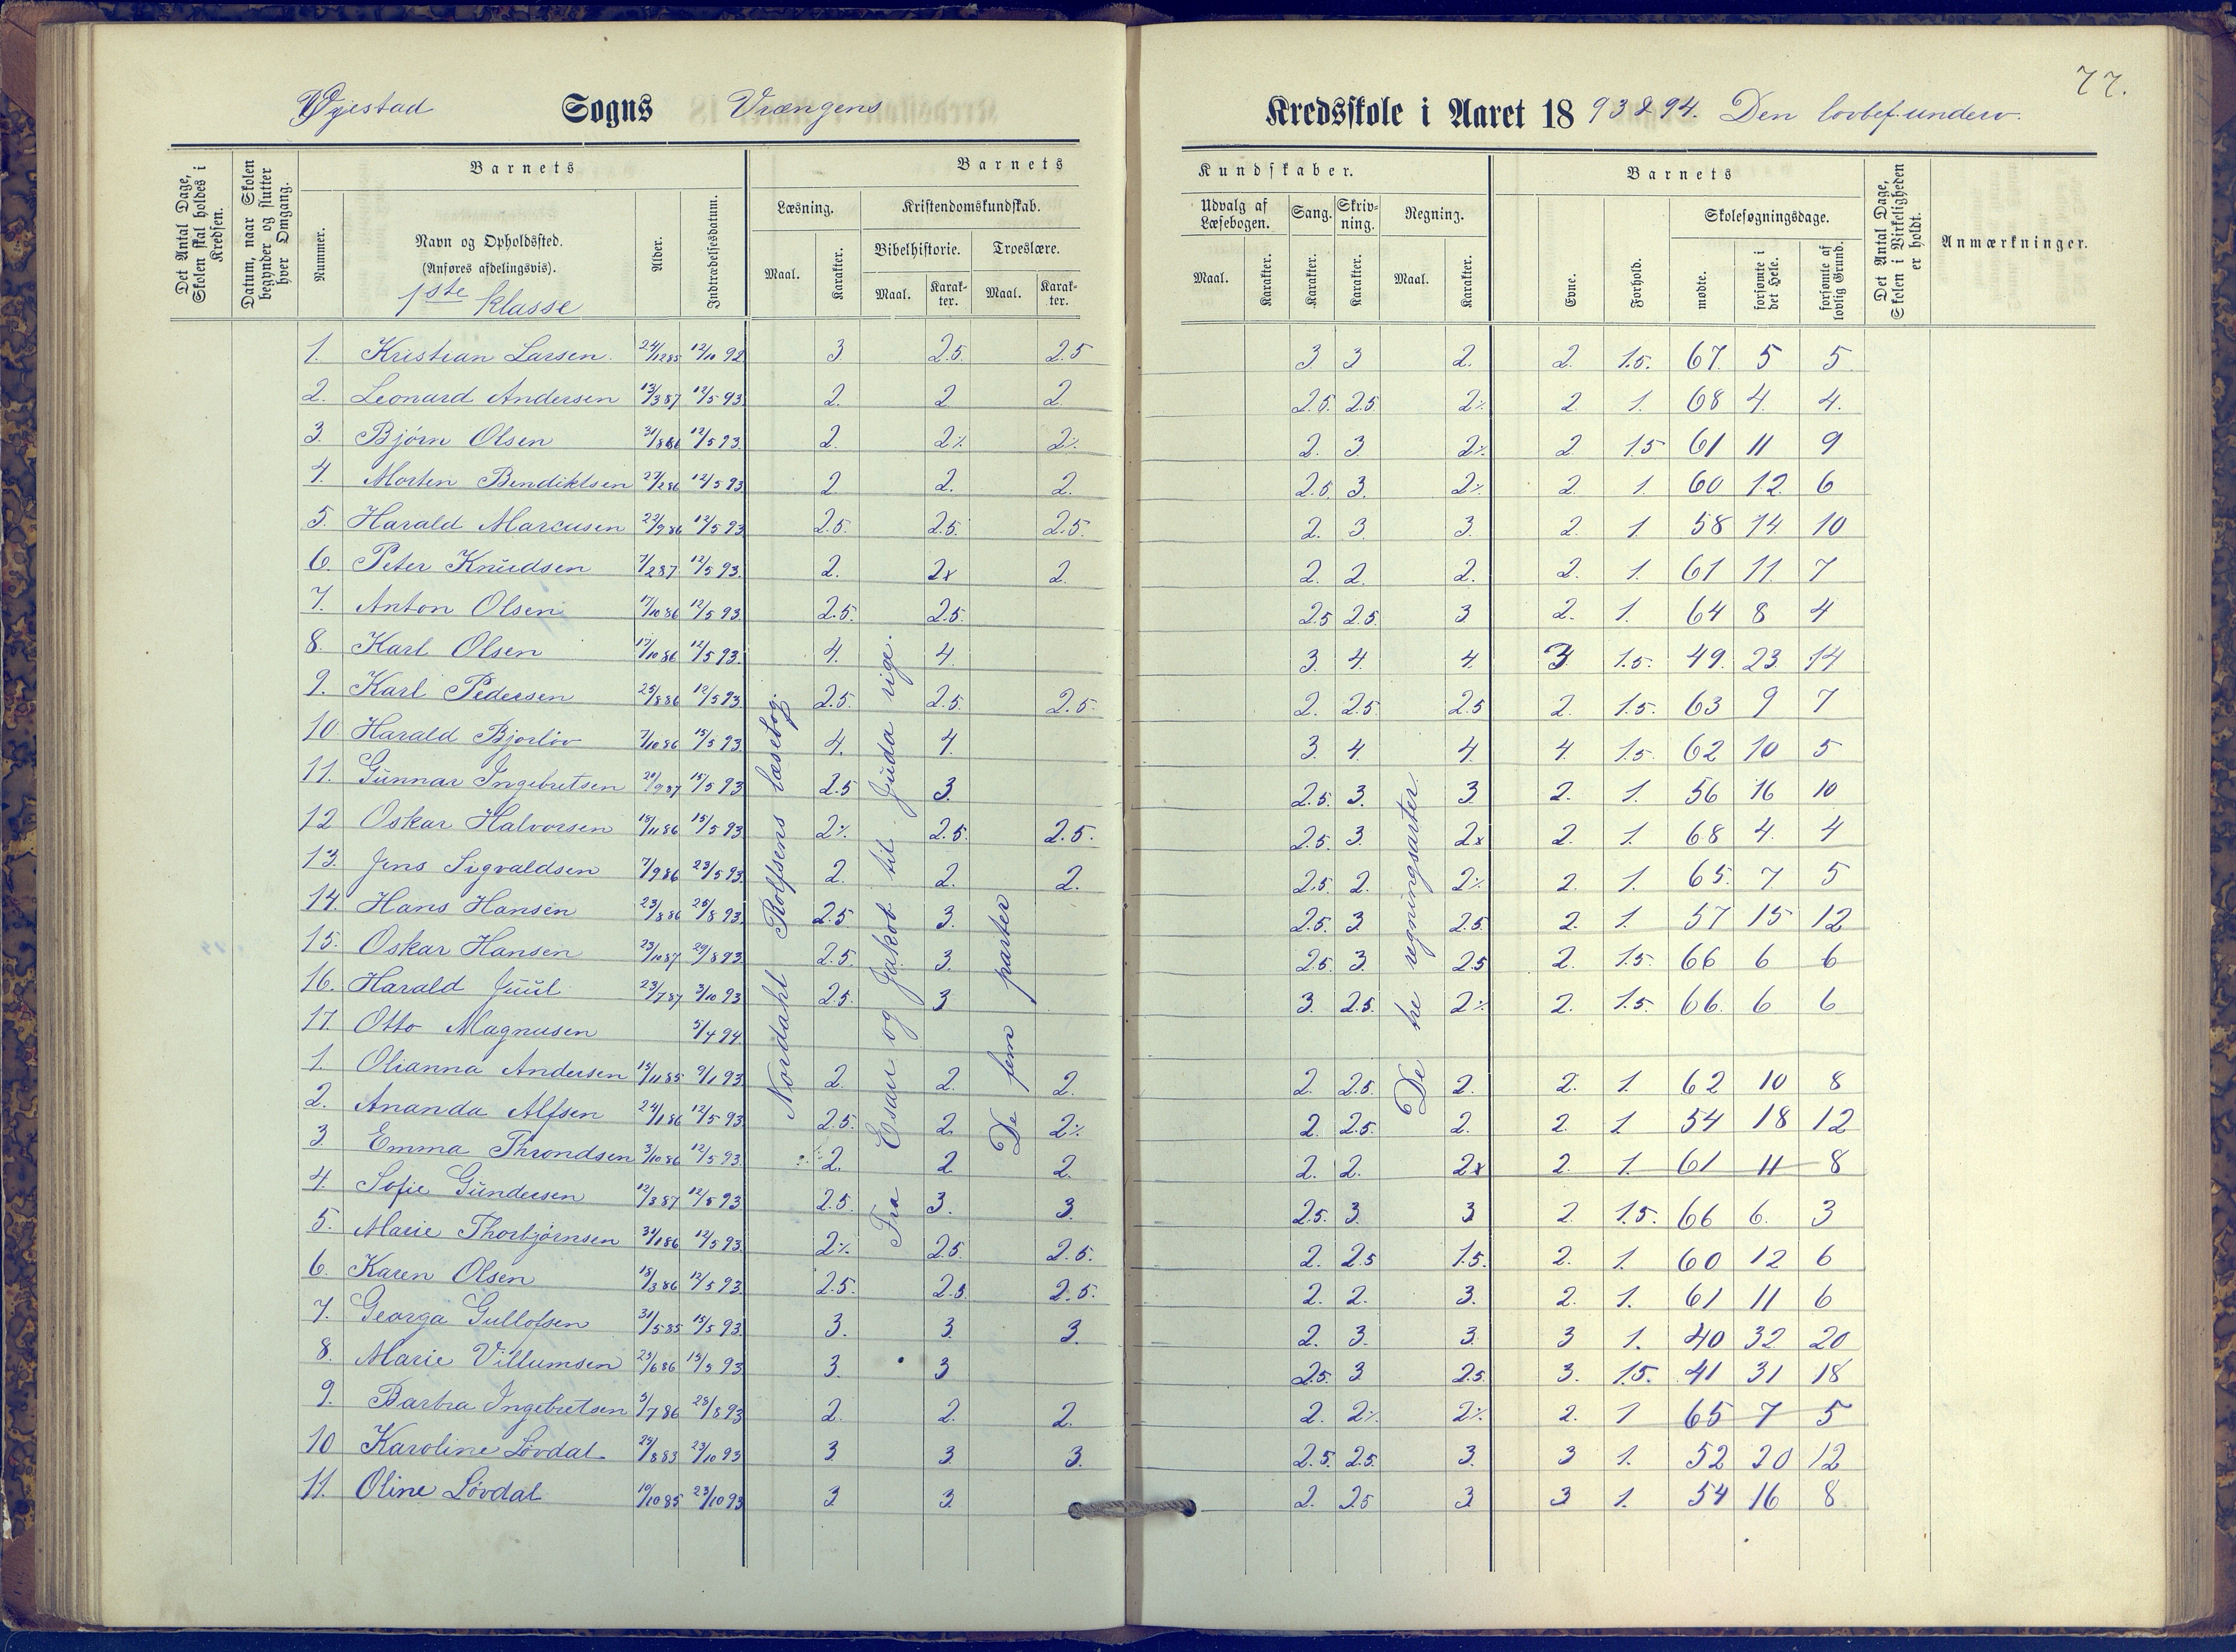 77.
Øyestad Sogns Vrængens Kredsskole i Aaret 18 93 & 94. Den lovbef. underv.
Det Antal Dage, Skolen skal holdes i Kredsen.
Datum, naar Skolen begynder og slutter hver Omgang.
Barnets
Nummer.
Navn og Opholdssted.
(Anføres afdelingsvis).
1ste klasse
Alder.
Indtrædelsesdatum.
Barnets Kundskaber.
Læsning.
Maal. Karakter.
Kristendomskundskab.
Bibelhistorie. Troeslære.
Maal. Karakter. Maal. Karakter.
Udvalg af Læsebogen.
Maal. Karakter.
Sang. Karakter.
Skrivning. Karakter.
Regning.
Maal. Karakter.
Barnets
Evne. Forhold.
Skolesøgningsdage.
mødte. forsømte i det Hele. forsømte af lovlig Grund.
Det Antal Dage, Skolen i Virkeligheden er holdt.
Anmærkninger.
Nordahl Rolfsens læsebog.
Fra Esau og Jakob til Juda rige.
De fem parter
De tre regningsarter
1. Kristian Larsen. 24/12 85 12/10 92 3 2.5 2.5 3 3 2. 2. 1.5. 67. 5 5
2. Leonard Andersen 13/3 87 12/5 93 2. 2 2 2.5. 2.5 2% 2 1. 68 4. 4.
3. Bjørn Olsen 31/8 86 12/5 93. 2. 2% 2% 2. 3. 2% 2 1.5 61 11 9
4. Morten Bendiktsen 27/2 86 12/5 93 2 2. 2. 2.5. 3. 2% 2. 1. 60 12. 6
5. Harald Marcusen 22/9 86 12/5 93 2.5. 2.5. 2.5. 2. 3. 3. 2. 1. 58 14. 10
6. Peter Knudsen 7/2 87 12/5 93. 2. 2x 2. 2. 2. 2. 2. 1. 61 11. 7
7. Anton Olsen 17/10 86 12/5 93. 2.5. 2.5. 2.5 2.5. 3 2. 1. 64 8 4
8. Karl Olsen 17/10 86 12/5 93. 4. 4. 3. 4. 4. 3. 1.5. 49. 23. 14
9. Karl Pedersen 25/8 86 12/5 93. 2.5. 2.5. 2.5. 2. 2.5 2.5 2. 1.5. 63 9 7
10. Harald Bjorløv 7/10 86 15/5 93. 4. 4. 3 4. 4 4. 1.5. 62 10 5
11. Gunnar Ingebretsen 20/9 87 15/5 93 2.5 3. 2.5. 3. 3 2. 1. 56 16 10
12 Oskar Halvorsen 18/11 86 15/5 93 2% 2.5. 2.5. 2.5. 3. 2x 2. 1. 68 4. 4
13. Jens Sigvaldsen 7/9 86 23/5 93. 2. 2. 2. 2.5 2. 2% 2. 1. 65. 7 5
14. Hans Hansen 23/8 86 25/8 93. 2.5 3. 2.5. 3 2.5. 2. 1. 57 15 12
15. Oskar Hansen 23/10 87 29/8 93. 2.5. 3. 2.5. 3. 2.5 2. 1.5. 66 6 6
16. Harald Juul 23/7 87 3/10 93 2.5. 3 3. 2.5. 2% 2. 1.5. 66. 6 6
17. Otto Magnusen 5/4 94
1. Olianna Andersen 15/11 85 9/1 93. 2. 2. 2. 2. 2.5. 2. 2. 1. 62 10 8
2. Ananda Alfsen 24/1 86 12/5 93 2.5. 2 2% 2. 2.5. 2. 2. 1 54 18 12
3 Emma Throndsen 3/10 86 12/5 93. 2. 2 2. 2. 2. 2x 2. 1. 61 11 8
4. Sofie Gundersen 12/3 87 12/5 93. 2.5. 3. 3. 2.5. 3. 3 2. 1.5. 66 6. 3
5. Marie Thorbjørnsen 31/1 86 12/5 93. 2% 2.5. 2.5. 2. 2.5 1.5. 2. 1. 60 12 6
6. Karen Olsen 18/3 86 12/5 93. 2.5. 2.5 2.5. 2. 2. 3. 2. 1. 61 11 6
7. Georga Gullofsen 31/5 85 15/5 93. 3. 3. 3. 2. 3. 3. 3 1. 40 32 20
8. Marie Villumsen 23/6 86 15/5 93 3. 3 2.5 3 2.5. 3. 1.5. 41 31 18
9. Barbra Ingebretsen 5/7 86 28/8 93 2. 2. 2. 2. 2% 2% 2. 1 65 7 5
10 Karoline Løvdal 24/8 83 23/10 93 3 3. 3. 2.5. 2.5. 3. 3 1. 52 20 12
11. Oline Løvdal 10/10 85 23/10 93 3 3 2. 2.5 3 3 1. 54 16 8